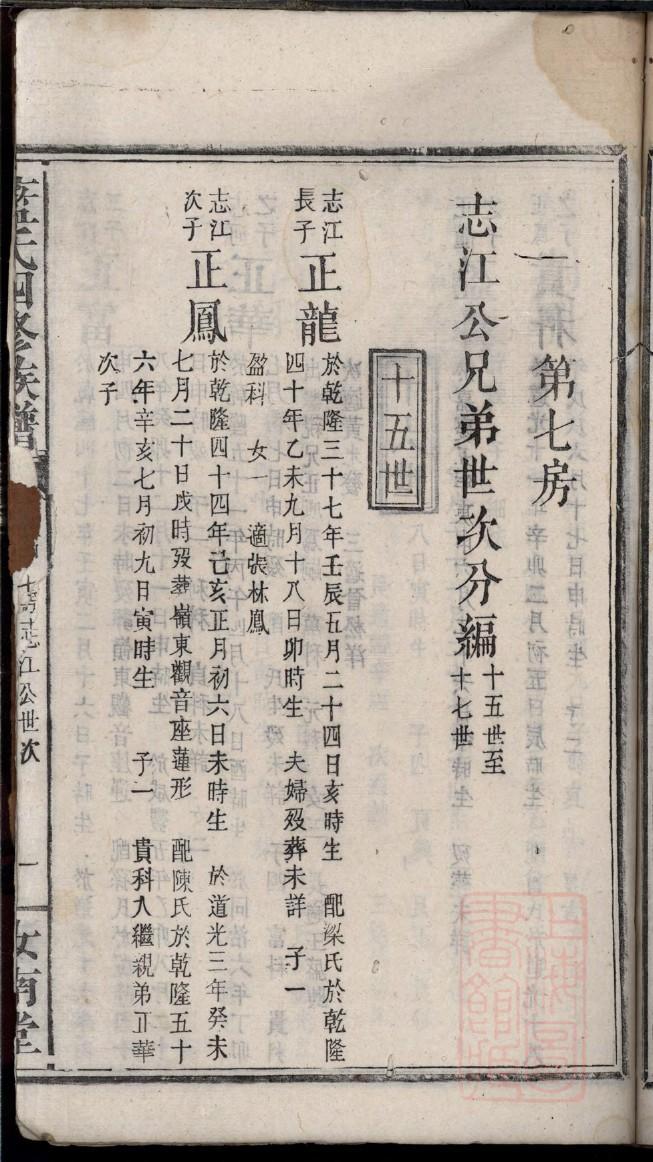 第七房
志江公兄弟世次分編
十五世至
十七世
十五世
志江
長子
正龍
於乾隆三十七年壬辰五月二十四日亥時生 配梁氏於乾隆
四十年乙未九月十八日卯時生 夫婦歿葬未詳 子一
盈科 女一 適張林鳳
志江
次子
正鳳
於乾隆四十四年己亥正月初六日未時生 於道光三年癸未
七月二十日戌時歿葬嶺東觀音座蓮形 配陳氏於乾隆五十
六年辛亥七月初九日寅時生 子一 貴科入繼親弟正華
次子
氏四修族譜
七房志江公世次
一
汝南堂
上海圖書館藏